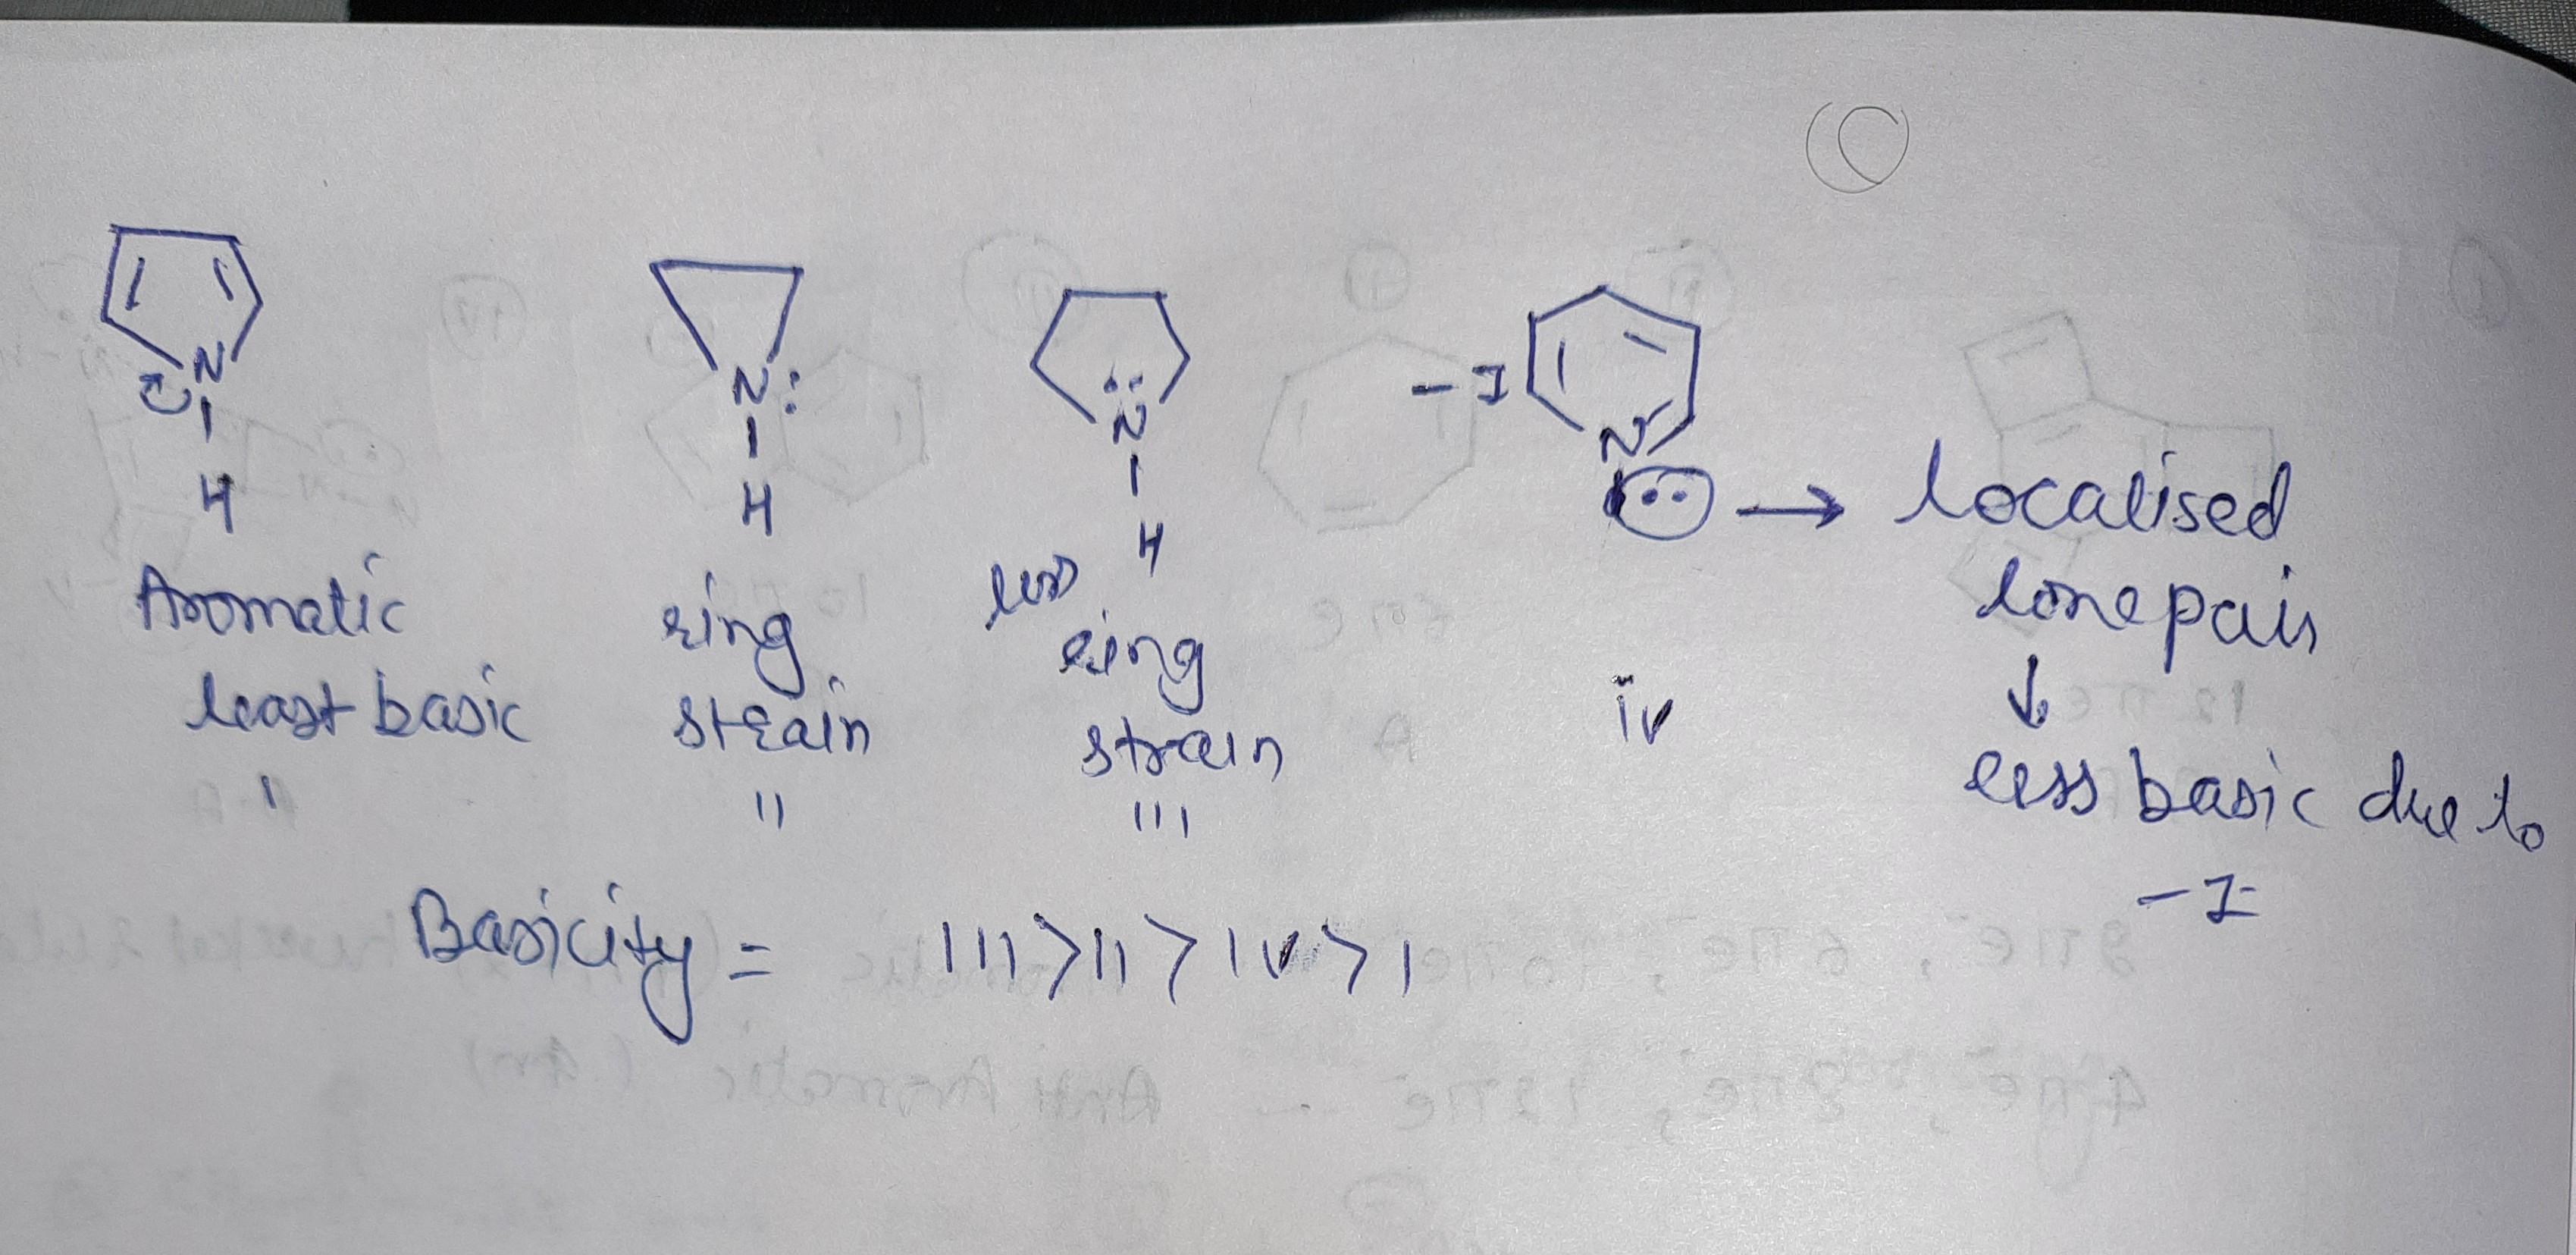 C
N
H
N:
H
N
H
-I
N
→ localised
lone pair
↓
less basic due to
-I
Aromatic
least basic
I
ring
strain
II
less
ring
strain
III
iv
Basicity = III > II > IV > I